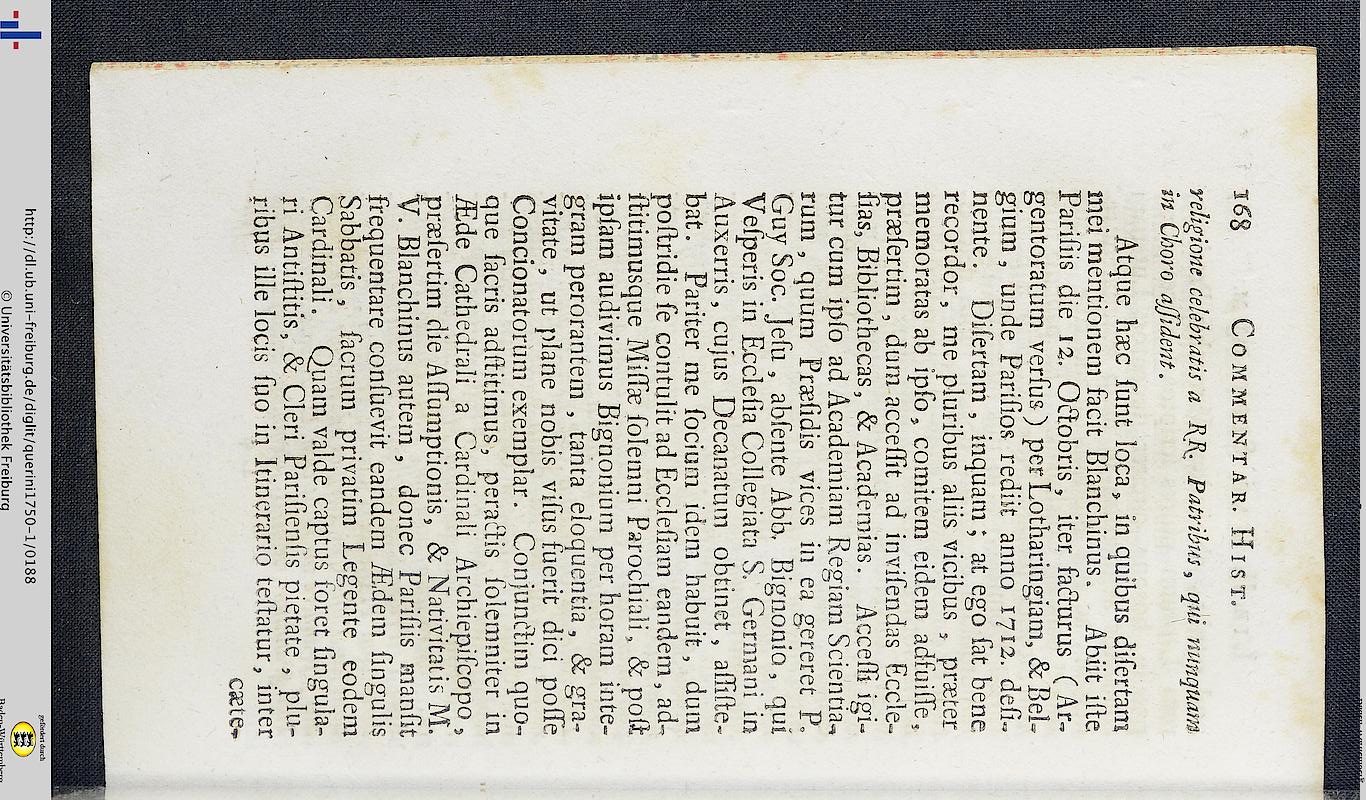 168 COMMENTAR. HIST.
religione celebratis a RR. Patribus, qui nunquam
in Choro aſſident.
Atque hæc ſunt loca, in quibus diſertam
mei mentionem facit Blanchinus. Abiit iſte
Pariſiis die 12. Octobris, iter facturus (Ar-
gentoratum verſus) per Lotharingiam, & Bel-
gium, unde Pariſios rediit anno 1712. deſi-
nente. Diſertam, inquam; at ego ſat bene
recordor, me pluribus aliis vicibus, præter
memoratas ab ipſo, comitem eidem adfuiſſe,
præſertim, dum acceſſit ad inviſendas Eccle-
ſias, Bibliothecas, & Academias. Acceſſi igi-
tur cum ipſo ad Academiam Regiam Scientia-
rum, quum Præſidis vices in ea gereret P.
Guy Soc. Jeſu, abſente Abb. Bignonio, qui
Veſperis in Eccleſia Collegiata S. Germani in
Auxerris, cujus Decanatum obtinet, aſſiſte-
bat. Pariter me ſocium idem habuit, dum
poſtridie ſe contulit ad Eccleſiam eandem, ad-
ſtitimusque Miſſæ ſolemni Parochiali, & poſt
ipſam audivimus Bignonium per horam inte-
gram perorantem, tanta eloquentia, & gra-
vitate, ut plane nobis viſus fuerit dici poſſe
Concionatorum exemplar. Conjunctim quo-
que ſacris adſtitimus, peractis ſolemniter in
Æde Cathedrali a Cardinali Archiepiſcopo,
præſertim die Aſſumptionis, & Nativitatis M.
V. Blanchinus autem, donec Pariſiis manſit
frequentare conſuevit eandem Ædem ſingulis
Sabbatis, ſacrum privatim Legente eodem
Cardinali. Quam valde captus foret ſingula-
ri Antiſtitis, & Cleri Pariſienſis pietate, plu-
ribus ille locis ſuo in Itinerario teſtatur, inter
cæte-
http://dl.ub.uni-freiburg.de/diglit/querini1750-1/0188
© Universitätsbibliothek Freiburg
gefördert durch